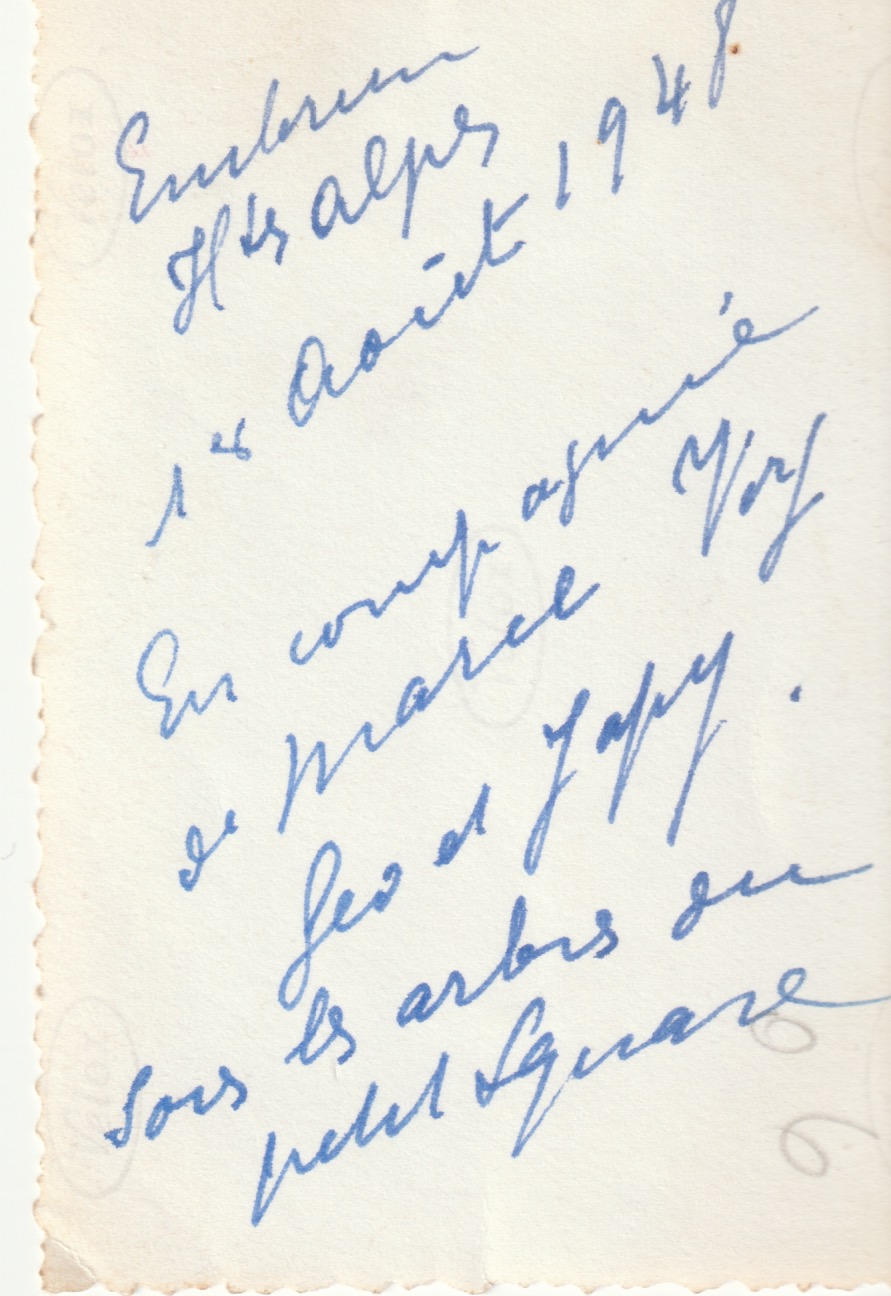 Embrun
Htes Alpes
1er Août 1948
En compagnie
de Marcel
Geo et Japy.
Sous les arbres du
petit Square